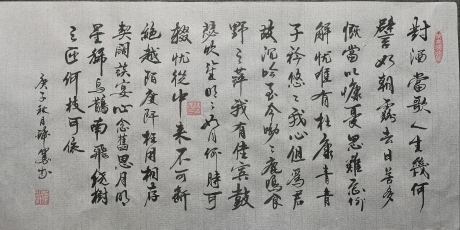 對酒當歌人生幾何
譬如朝露去日苦多
慨當以慷憂思難忘何
解憂唯有杜康青青
子衿悠悠我心但為君
故沉吟至今呦呦鹿鳴食
野之苹我有佳賓鼓
瑟吹笙明明如月何時可
掇憂從中來不可斷
絕越陌度阡枉用相存
契闊談宴心念舊恩月明
星稀烏鵲南飛繞樹
三匝何枝可依
庚子秋月書